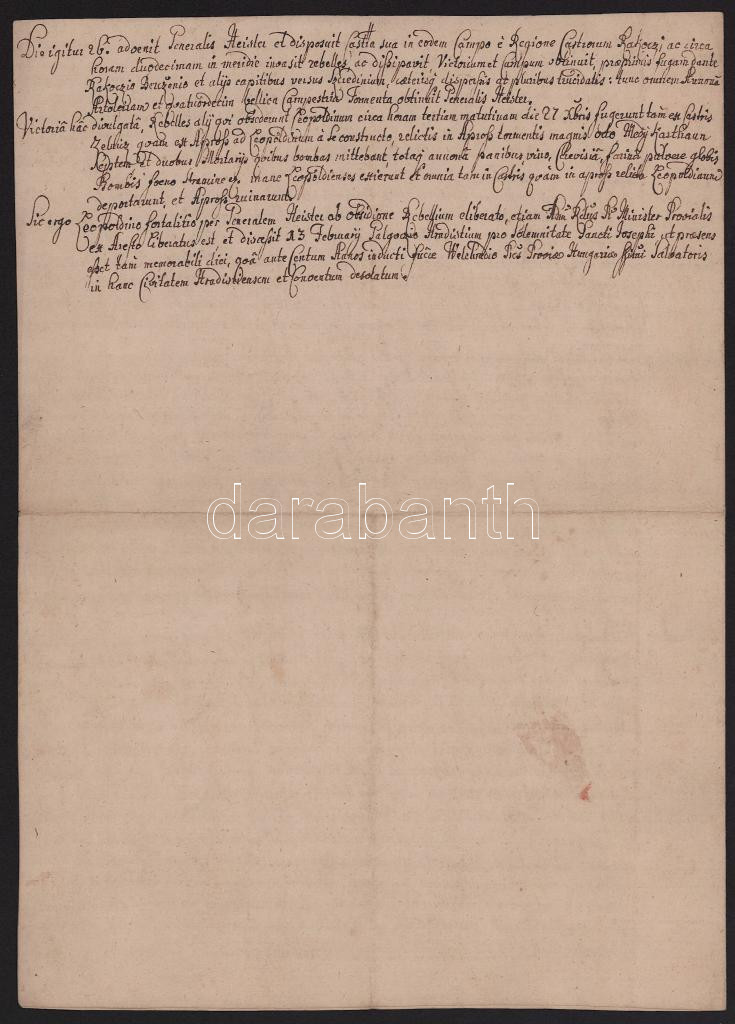 Die igitur 26ᵃ advenit Generalis Heister et disposuit Castra sua in eodem Campo è Regione Castrorum Rakoczi, ac circa
horam duodecimam in meridie invasit rebelles, ac dissipavit Victoriam et Campum obtinuit, fugam dante
Rakoczio Berczenio et alijs capitibus versus cæterisq dispersis et pluribus trucidatis: tunc omnem
Artoleriam et quatuordecim bellica Campestria Tormenta obtinuit Generalis Heister.
Victoriâ hâc divulgatâ, Rebelles alij qui obsederunt Leopoldinum circa horam tertiam matutinam die 27 Xbris fugerunt tam ex Castris
quam ex Apross ad Leopoldinum à se constructo, relictis in Aprosh tormentis magnis octo
et duobus Mortarijs quibus bombas mittebant, tota annonâ panibus, vino, Cerevisiâ, farinâ globis
Bombis foeno stramine et mane Leopoldienses exierunt et omnia tam in Castris quàm in Aprosh relicta Leopoldinum
deportarunt, et Aprosh ruinarunt.
Sic ergo Leopoldino fortalitio per Generalem Heister ab obsidione Rebellium liberato, etiam Minister Provlis
ex Aresto liberatus est, et discessit 13 Februarij Galgocio Hradistium pro Solemnitate Sancti Josephi, ut præsens
esset tam memorabili diei, quâ ante Centum Annos inducti Hungariæ Salvatoris
in hanc Civitatem Hradistiensem et Conventum desolatum.
darabanth